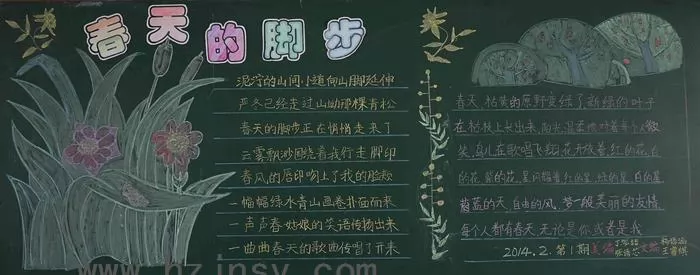 春天的脚步
泥泞的山间小道向山脚延伸
严冬已经走过山坳那棵青松
春天的脚步正在悄悄走来了
云雾飘渺围绕着我行走脚印
春风的唇印吻上了我的脸颊
一幅幅绿水青山画卷扑面而来
一声声春姑娘的笑语传扬出来
一曲曲春天的歌曲传唱了开来
春天 枯黄的原野变绿了 新绿的叶子
在枯枝上长出来 阳光温柔地对着每个人微
笑 鸟儿在歌唱飞翔 花开放着 红的花 白
的花 紫的花 星闪耀着 红的星 绿的星 白的星
蔚蓝的天 自由的风 梦一般美丽的友情
每个人都有春天 无论是你或者是我
2014.2. 第1期 美编 文编
www.hzjnsy.com